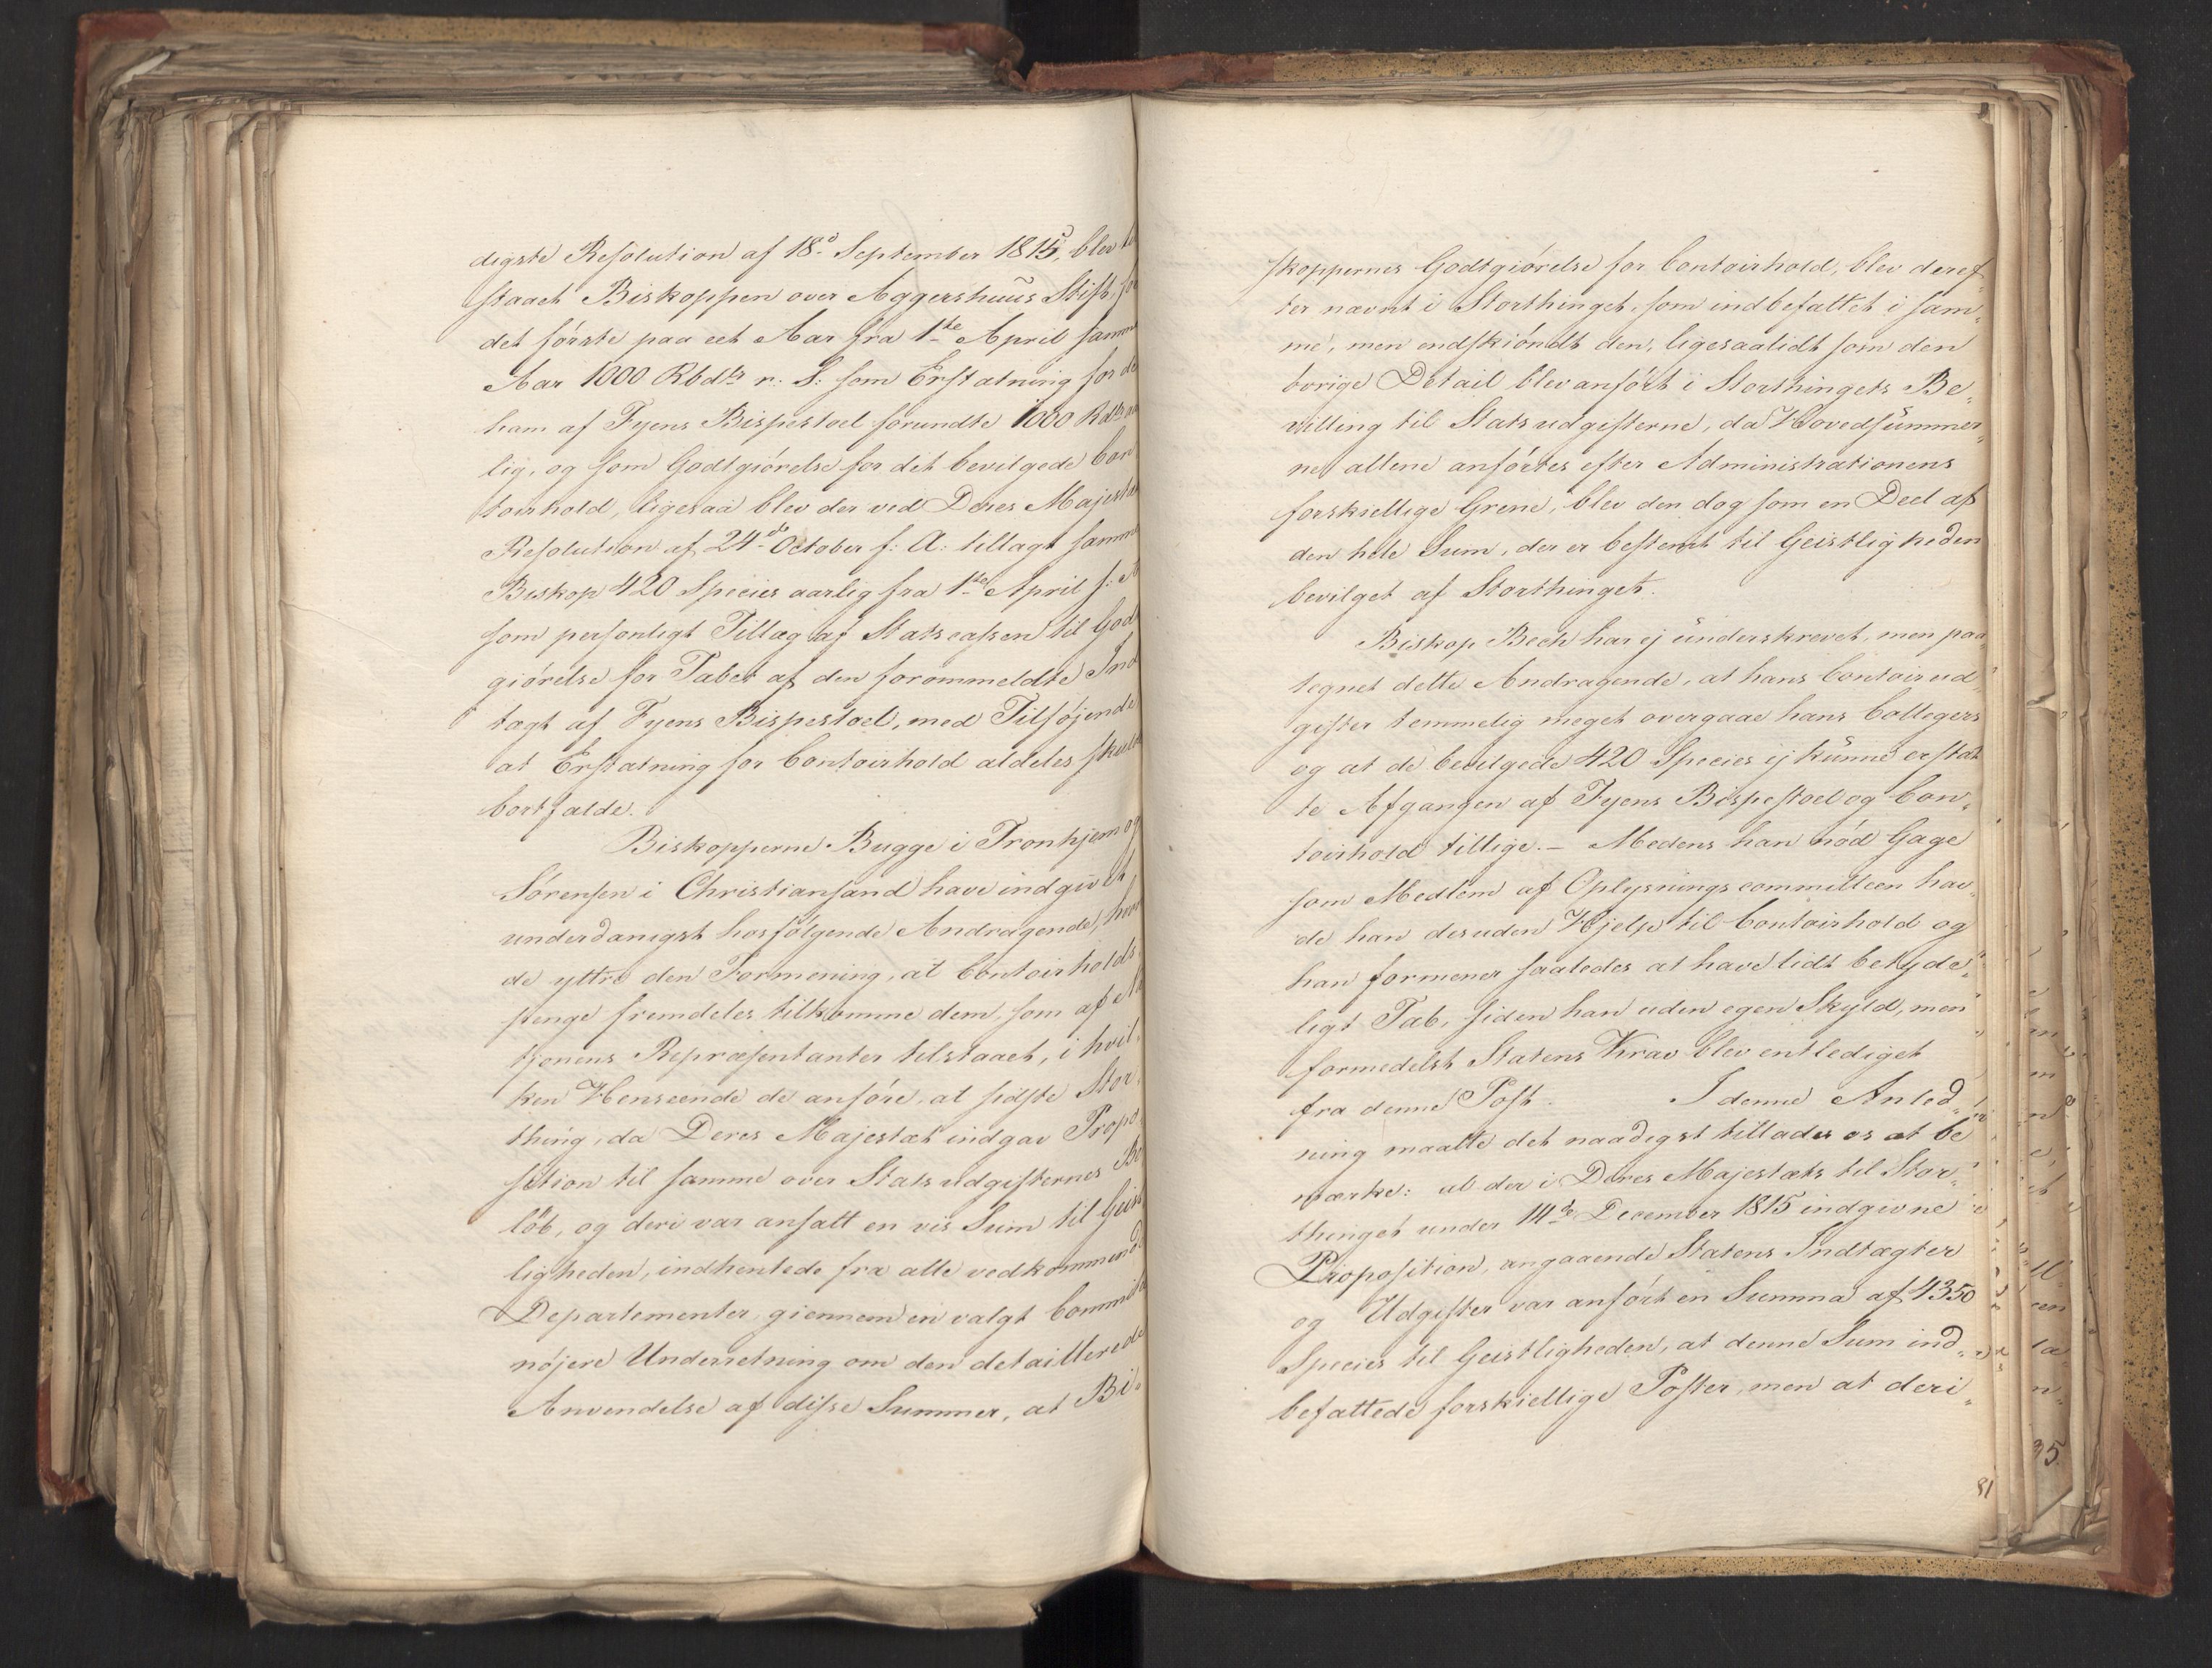 digste Resolution af 18d September 1815, blev til
staaet Biskoppen over Aggershuus Stift, for
det første paa eet Aar fra 1ste April samme
Aar 1000 Rbdlr r: S: som Erstatning for de
ham af Fyens Bispestoel forundte 1000 Rdlr aar
lig, og som Godtgiørelse for det bevilgede Con
toirhold, ligesaa blev der ved Deres Majestæts
Resolution af 24de October s: A: tillagt samme
Biskop 420 Species aarlig fra 1ste April s: A
som personligt Tillæg af Statscassen til Godt
giørelse for Tabet af den forommeldte Ind
tægt af Fyens Bispestoel, med Tilføjende
at Erstatning for Contoirhold aldeles skulde
bortfalde.
Biskopperne Bugge i Tronhjem og
Sørensen i Christiansand have indgivet
underdanigst hosfølgende Andragende, hvori
de yttre den Formening, at Contoirholds
penge fremdeles tilkomme dem, som af Na
tionens Repræsentanter tilstaaet, i hvil-
ken Henseende de anføre, at sidste Stor-
thing, da Deres Majestæt indgav Propo-
sition til samme over Statsudgifternes Be
løb, og deri var ansatt en vis Sum til Geist
ligheden, indhentede fra alle vedkommende
Departementer giennem en valgt Committe
nøjere Underretning om den detaillerede
Anvendelse af disse Summer, at Bi-
skoppernes Godtgiørelse for Contoirhold, blev deref-
ter nævnt i Storthinget, som indbefattet i sam-
me, men endskiøndt den, ligesaalidt som den
øvrige Detail blev anført i Storthingets Be-
villing til Statsudgifterne, da Hovedsummer-
ne allene anførtes efter Administrationens
forskiellige Grene, blev den dog som en Deel af
den hele Sum, der er bestemt til Geistligheden
bevilget af Storthinget.
Biskop Bech har ej underskrevet, men paa-
tegnet dette Andragende, at hans Contoirud-
gifter temmelig meget overgaae hans Collegers
og at de bevilgede 420 Species ej kunne erstat-
te Afgangen af Fyens Bispestoel og Con-
toirhold tillige. – Medens han nød Gage
som Medlem af Oplysningscommitteen hav-
de han desuden Hjelp til Contoirhold og
han formener saaledes at have lidt betyde-
ligt Tab, siden han uden egen Skyld, men
formedelst Statens Krav blev entlediget
fra denne Post. I denne Anled-
ning maatte det naadigst tillades os at be
mærke: at der i Deres Majestæts til Stor-
thinget under 14de December 1815 indgivne
Proposition, angaaende Statens Indtægter
og Udgifter var anført en Summa af 4350
Species til Geistligheden, at denne Sum ind-
befattede forskiellige Poster, men at deri-
81
35